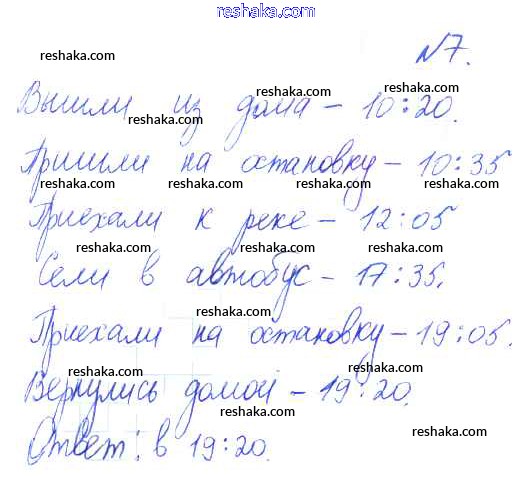 reshaka.com
reshaka.com
№7.
reshaka.com reshaka.com
Вышли из дома – 10:20.
reshaka.com
Пришли на остановку – 10:35
reshaka.com reshaka.com reshaka.com
Приехали к реке – 12:05
reshaka.com reshaka.com
Сели в автобус – 17:35.
reshaka.com reshaka.com
Приехали на остановку – 19:05.
reshaka.com reshaka.com
Вернулись домой – 19:20.
reshaka.com reshaka.com
Ответ: в 19:20.
reshaka.com
reshaka.com